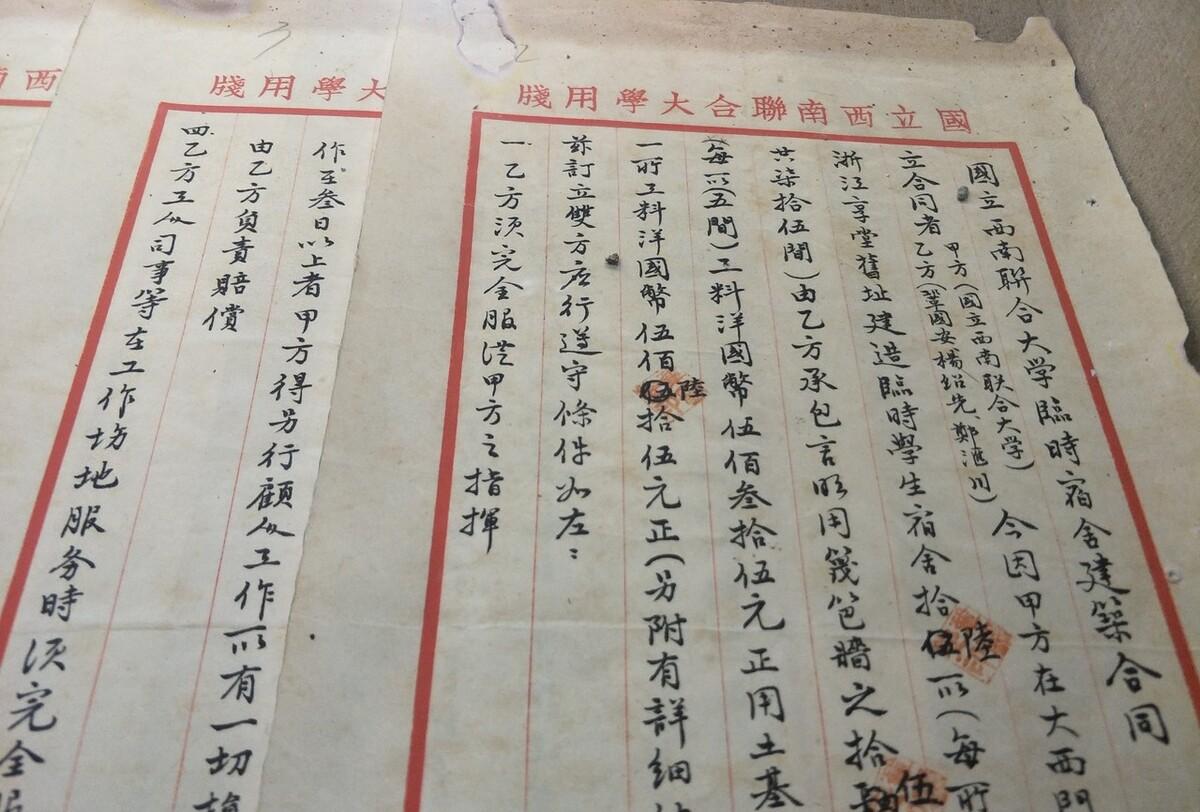 國立西南聯合大學用牋
國立西南聯合大学臨時宿舍建築合同
立合同者甲方(國立西南联合大学)
乙方(鞏國安楊紹先鄭滙川)今因甲方在大西門
浙江享堂舊址建造臨時學生宿舍拾伍陸所(每所
共柒拾伍間)由乙方承包言明用篾笆牆之拾伍
每所(五間)工料洋國幣伍佰叁拾伍元正用土基
一所工料洋國幣伍佰伍陸拾伍元正(另附有詳細
茲訂立雙方應行遵守條件如左：
一乙方須完全服從甲方之指揮
2
大學用牋
作至叁日以上者甲方得另行顧人工作所有一切損
由乙方負責賠償
四乙方工人司事等在工作場地服务時須完全服
3
西